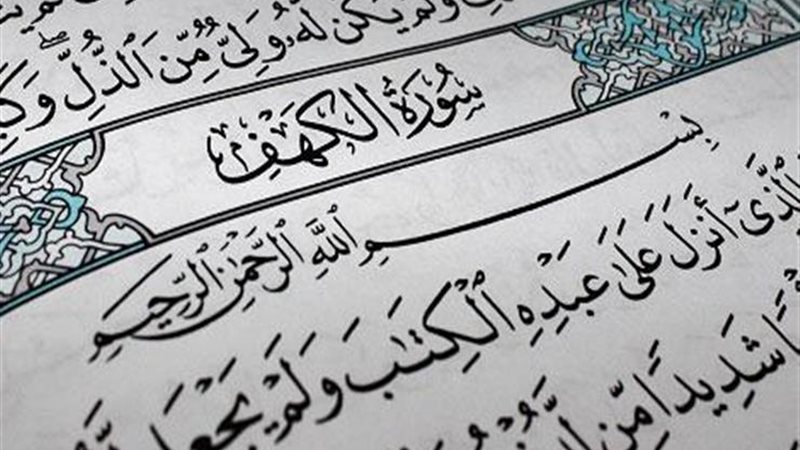 وَلَمْ يَكُن لَّهُۥ وَلِىٌّ مِّنَ ٱلذُّلِّ ۖ
سُورَةُ الكَهْفِ
بِسْمِ ٱللَّهِ ٱلرَّحْمَٰنِ ٱلرَّحِيمِ
ٱلَّذِىٓ أَنزَلَ عَلَىٰ عَبْدِهِ ٱلْكِتَٰبَ وَلَمْ يَجْعَل
شَدِيدًا مِّن